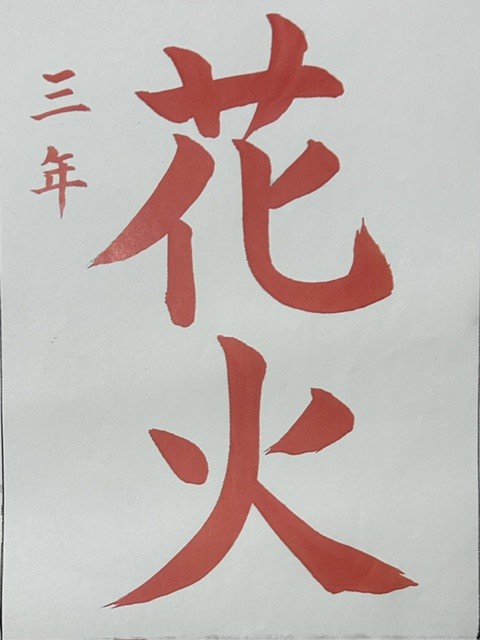 花火
三年